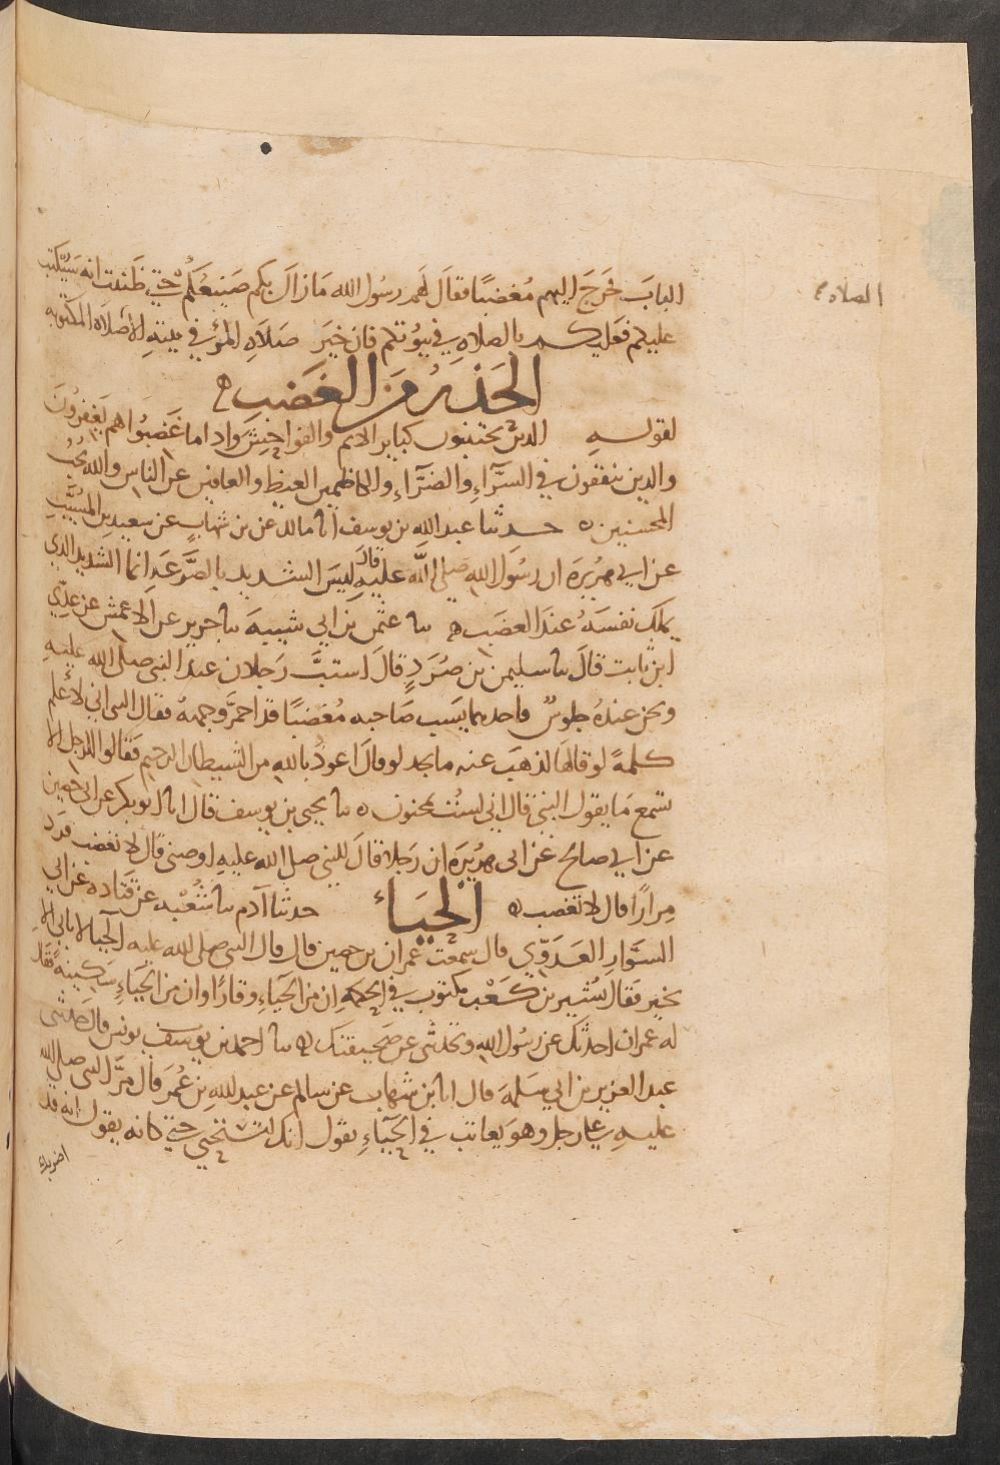 الباب فخرج اليهم مُغضبًا فقال لهم رسُول الله مَا زال بكم صَنيعُكُمْ حتى ظَنَنت انه سَيُكتب
الصلاة
عليكم فعليكم بالصلاه في بيُوتكم فان خيَر صَلاَهِ المرْء في بيتهِ الا صَلاَة المكتوبه
الحَذرُ مِنَ الغَضَبِ ه
لقولـه الدين يجتنبون كباير الاثم والفواحِش واذا ما غَضبُوا هم يَغفِرُونَ
والدين ينفقون في السَّرآءِ والضرَّآءِ والكاظمين الغيظ والعافين عن الناس والله يُحبُ
المحسنين ه حدثنا عبد الله بن يوسف انا مالك عن بن شهابٍ عن سعيد بن المُسَيَّبِ
عن ابي هرُيرَه ان رسُول الله صَلى اللَّه عليه قال ليسَ الشديد بالصُّرَعَه انما الشديد الذي
يملك نفسَهُ عندَ الغضَب ه نا عثمن بن ابي شيبه نا جرير عن الاعمش عن عدِّي
ابن ثابت قالَ نا سليمن بن صُرَدٍ قالَ استبَّ رَجلان عند النبي صلى الله عليهِ
ونحن عندهُ جلوسٌ واحدهما يسَب صَاحبه مُغضبًا قد احمرَّ وجههُ فقال النبي اني لاَعْلم
كلمةً لو قالهَا لذهَبَ عنه ما يجد لو قال اعوذُ بالله من الشيطان الرجيم فقالوا للرجل الا
تسْمع مَا يقول النبي قال اني لسْتُ بمجنون ه نا يحيى بن يوسف قال انا ابو بكر عن ابي حصين
عن ابي صالح عن ابى هرُيرَه ان رَجلا قالَ للنبي صلى الله عليهِ اوصنى قال لا تغضب فردد
مِرارًا قال لا تغضب ه الحَيَاءُ حدثنا آدم نا شُعْبه عن قتاده عن ابي
السَّوارِ العَدَوّي قال سمعت عمران بن حصين قال قال النبى صلى الله عليه الحَيآ لا ياتي الا
بخير فقال بُشير بن كَعْب مكتوب في الحكمهِ ان من الحيَاءِ وقارًا وان من الحيَاءِ سَكينةً فقال
له عمران احدثك عن رسُول الله وتحدثنى عن صَحيفتك ه نا احمد بن يوسف يونس قال حدثنى
عبد العزيز بن ابي سَلمهَ قال انا بن شهاب عن سالم عن عبد اللهِ بن عُمَر قال مرَّ النبى صلى الله
عليهِ على رجل وهوَ يعاتب في الحَيآءِ يقول انك لتَسْتحيي حتى كانه يقول انه قد
اضر بك